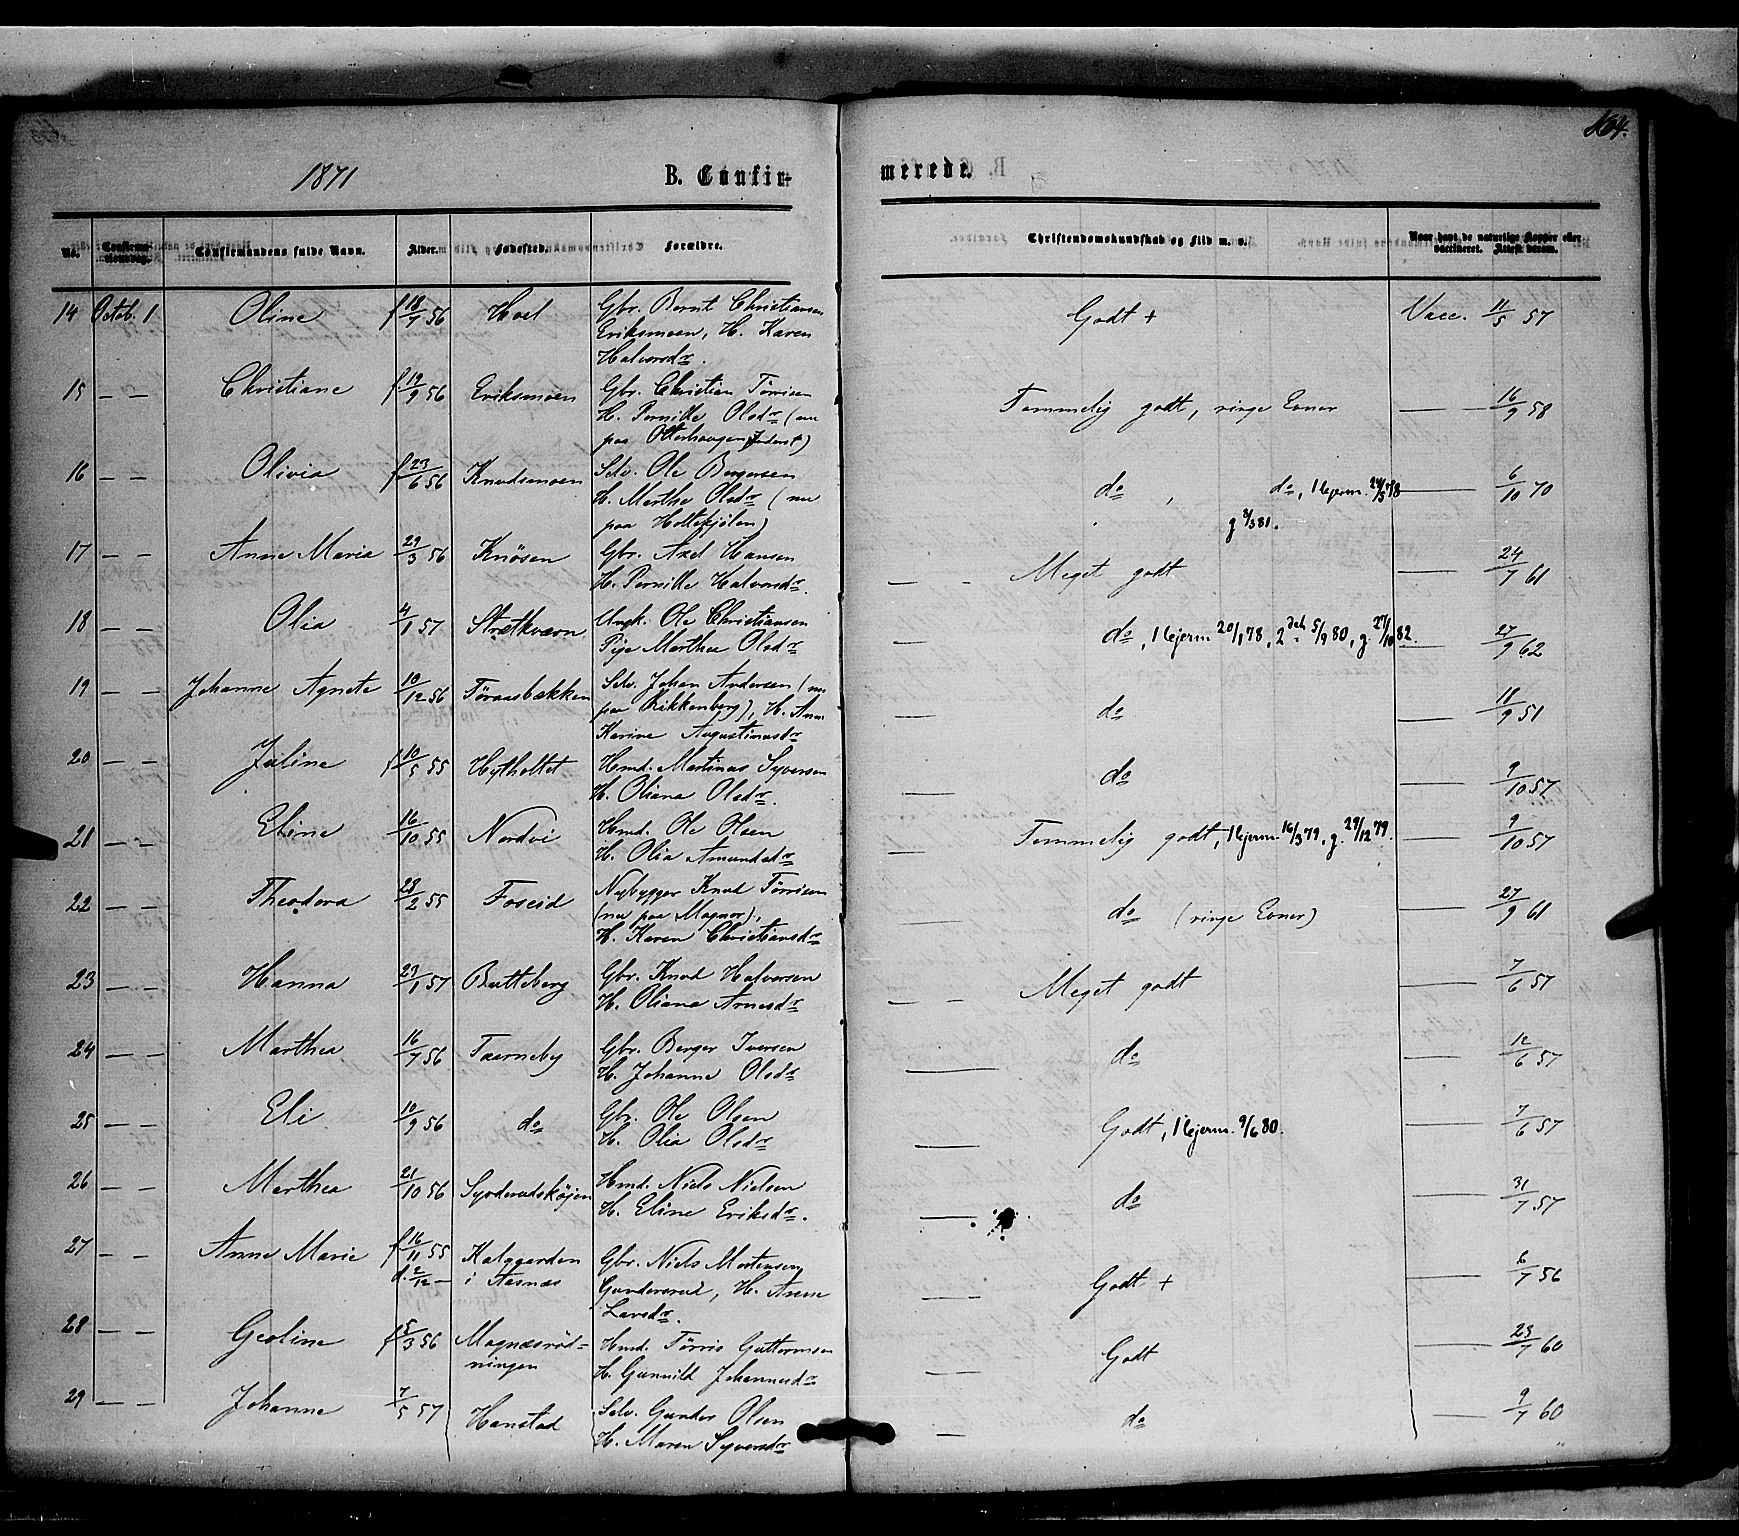 164.
1871 B. Confir- merede.
No. Confirmationsdag. Confirmandens fulde Navn. Alder. Fødested. Forældre. Christendomskundskab og Flid m. v. Naar havt de naturlige Kopper eller vaccineret. Attest derom.
14 Octob. 1 Oline f 18/7 56 Hoel Gbr. Bernt Christiansen Godt + Vacc. 11/5 57
Eriksmoen, H. Karen
Halvorsdr.
15 — — Christiane f 19/9 56 Eriksmoen Gbr. Christian Tørrisen Temmelig godt, ringe Evner — 16/9 58
H. Pernille Olsdr (nu
paa Otterhougen Inderst)
16 — — Olivia f 23/6 56 Knudsmoen Selv. Ole Bergersen do, do, 1 lejerm. 24/5 78 — 6/10 70
H. Marthe Olsdr (nu g 8/3 81.
paa Holtefjølen)
17 — — Anne Maria 29/3 56 Knøsen Gbr. Axel Hansen — — Meget godt — 24/7 61
H. Pernille Halvorsdr.
18 — — Olia 4/1 57 Strætkværn Ungk. Ole Christiansen — do, 1 lejerm 20/1 78, 2den 5/9 80, g 27/10 82. — 27/9 62
Pige Marthea Olsdr
19 — — Johanne Agnete 10/12 56 Føraasbækken Selv. Johan Andersen (nu — do — 11/9 51
paa Rikkenberg), H. Anne
Karine Augustinusdr
20 — — Juline f 10/5 55 Hytholtet Hmd. Martinus Syversen — do — 9/10 57
H. Oliana Olsdr.
21 — — Eline 16/10 55 Nordvi Hmd. Ole Olsen — Temmelig godt, 1 lejerm. 16/3 79, g. 29/12 79. — 9/10 57
H. Olia Amundsdr
22 — — Theodora 28/2 55 Foseid Nybygger Knud Tørrisen — do (ringe Evner) — 27/9 61
(nu paa Magnor),
H. Karen Christiansdr
23 — — Hanna 23/1 57 Butteberg Gbr. Knud Halvorsen — — Meget godt — 7/6 57
H. Oliana Arnesdr
24 — — Marthea 16/7 56 Taarneby Gbr. Berger Iversen — do — 12/6 57
H. Johanne Olsdr
25 — — Eli 10/9 56 do Gbr. Ole Olsen — Godt, 1 lejerm. 9/6 80. — 7/6 57
H. Olia Olsdr
26 — — Marthea 21/10 56 Hmd. Niels Nielsen — do — 31/7 57
H. Eline Eriksdr.
27 — — Anne Marie f 16/11 55 Kalvgarden Gbr. Niels Mortensen — Godt + — 6/7 56
d. 2/12 — i Aasnæs Gundersrud, H. Anne
Larsdr.
28 — — Geoline f 5/3 56 Magnæsrød- Hmd. Tørris Guttormsen — Godt — 23/7 60
ningen H. Gunnild Johannesdr
29 — — Johanne 7/5 57 Hanstad Selv. Gunder Olsen — do — 9/7 60
H. Maren Syversdr